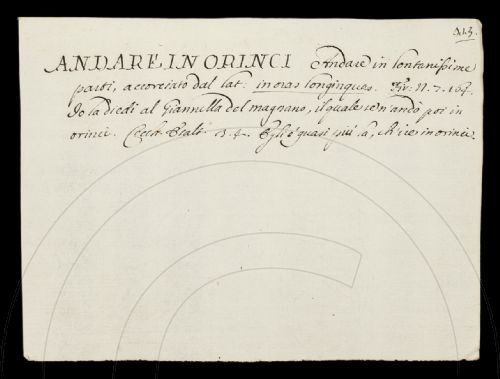 413.
ANDARE IN ORINCI Andare in lontanissime
parti, accorciato dal lat. in oras longinquas. Fir. N. 7. 164.
Io la diedi al Giannella del magnano, il quale se n'andò poi in
orinci. Cecch. 3. 4. Egli è quasi più là, ch'ire in orinci.